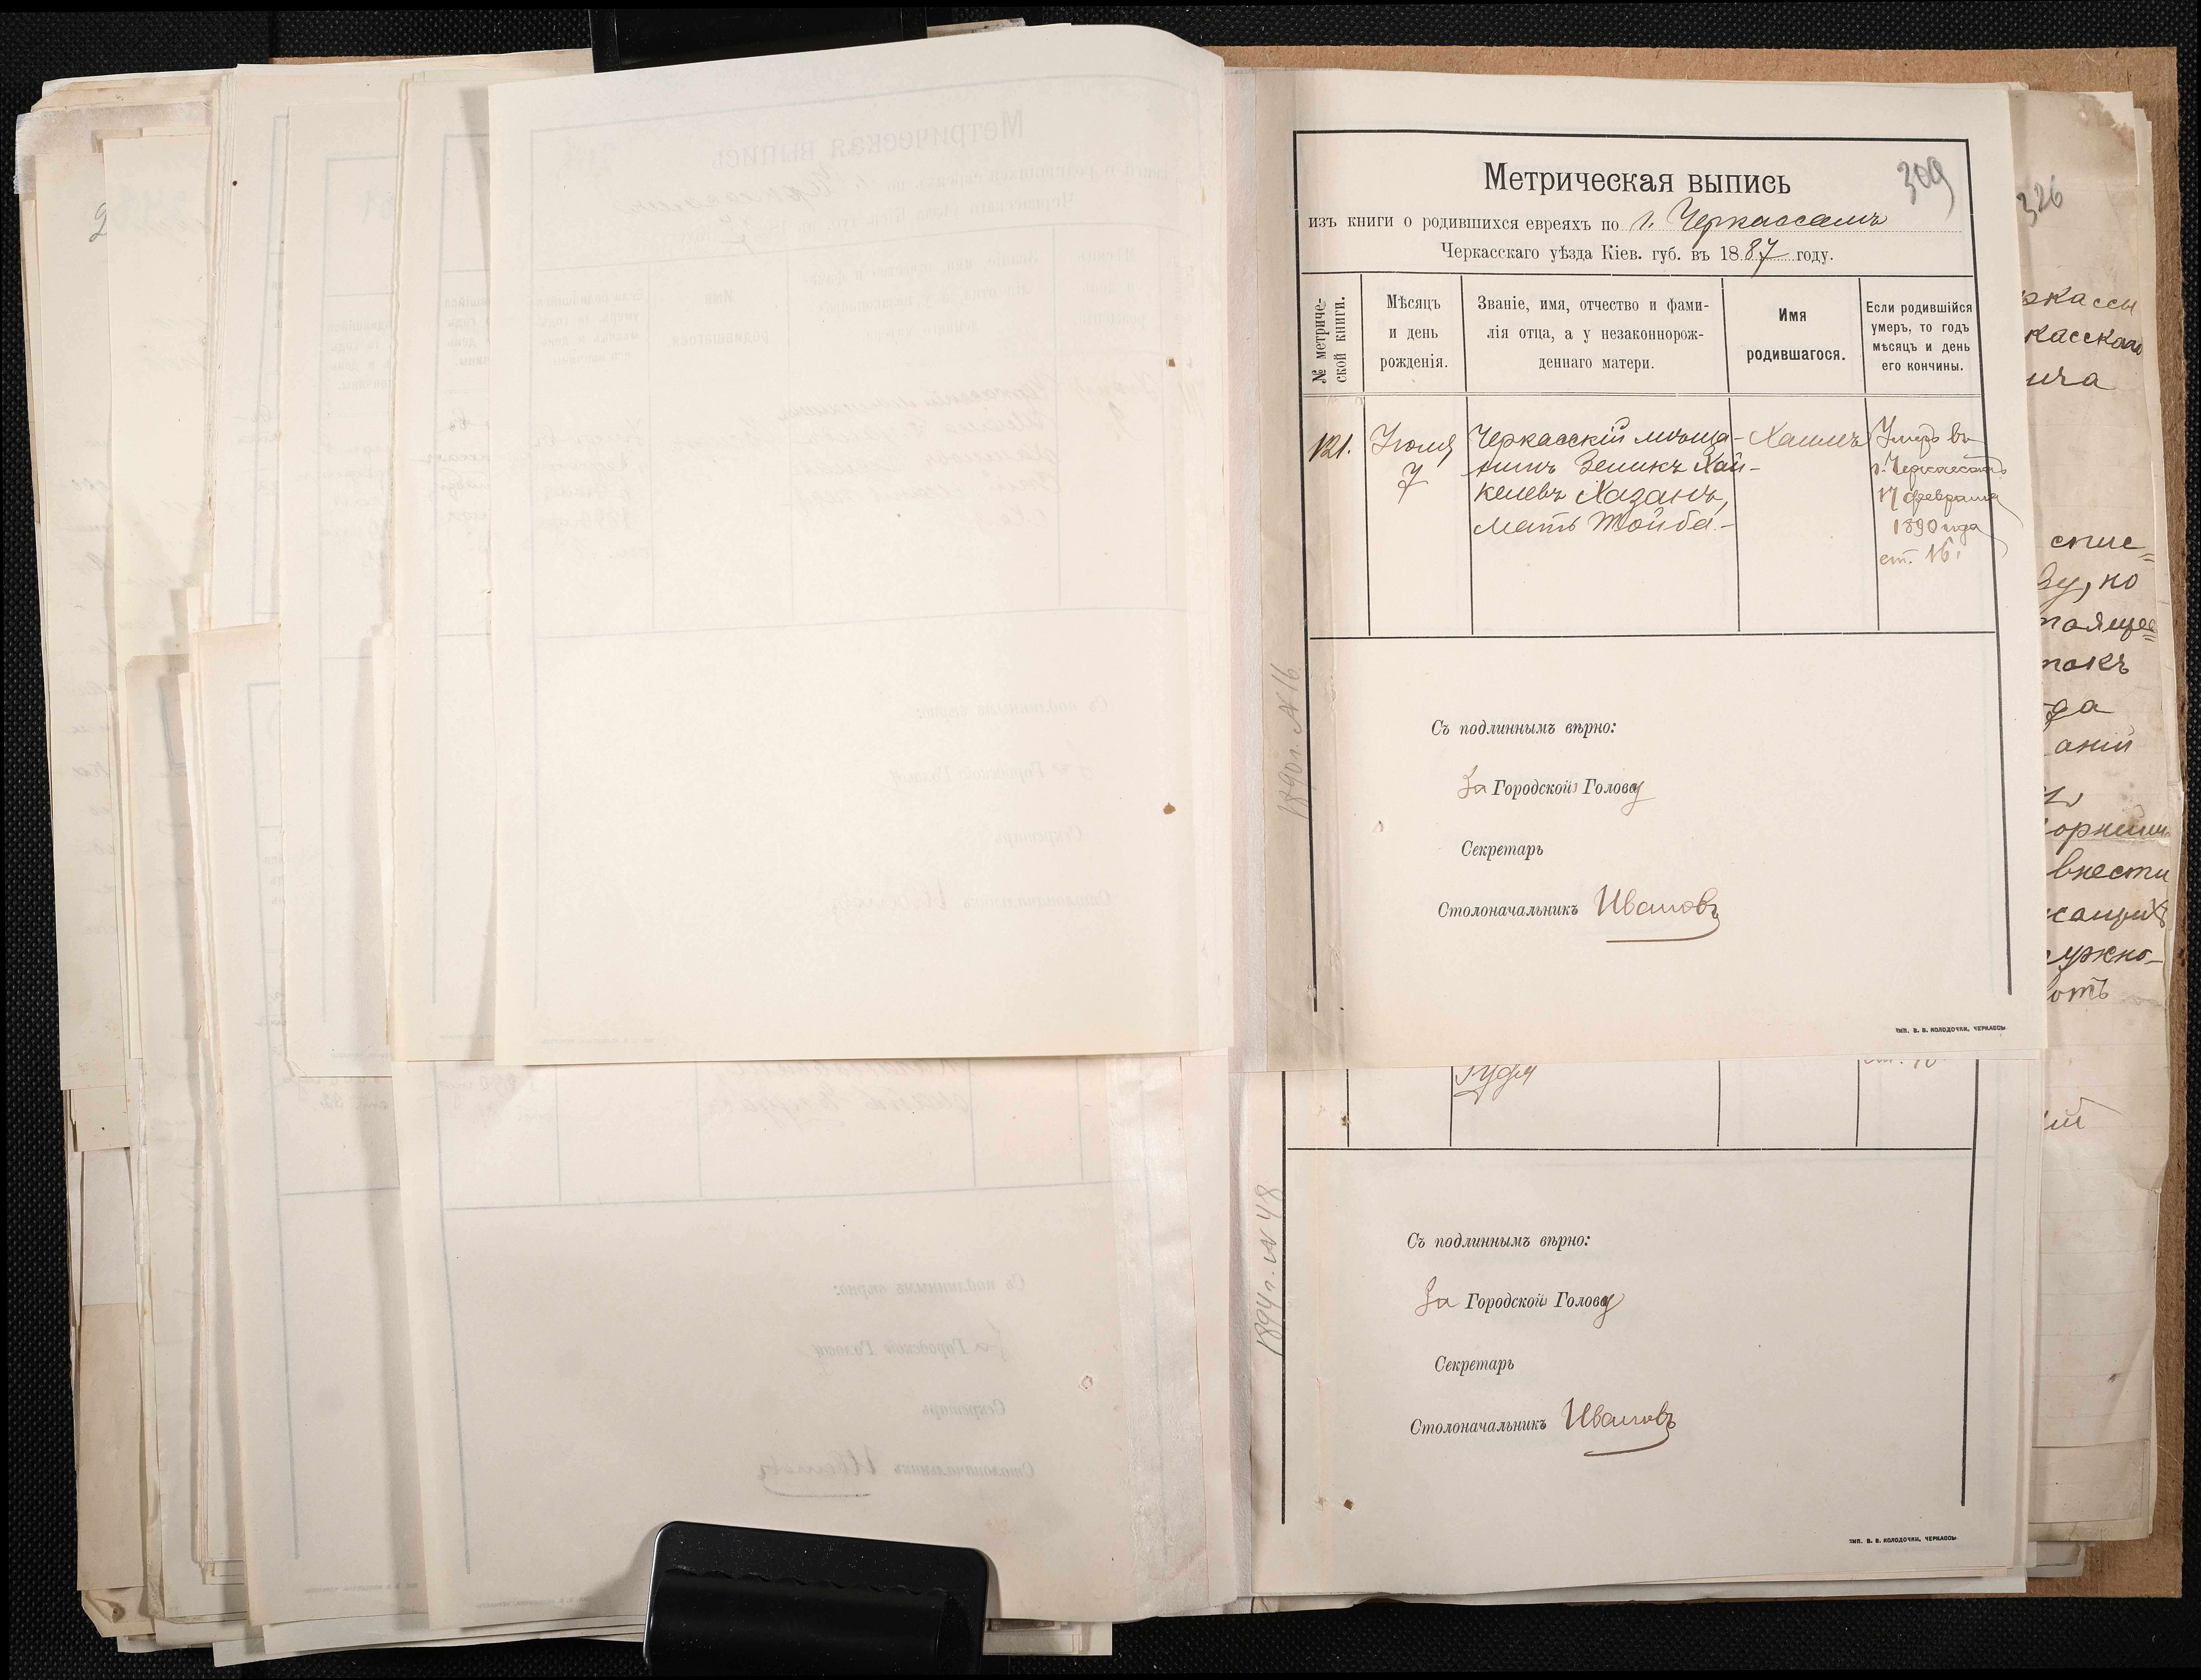 Метрическая выпись
309
изъ книги о родившихся евреяхъ по г. Черкассамъ
Черкасскаго уѣзда Кіев. губ. въ 1887 году.
№ метриче-
ской книги.
Мѣсяцъ
и день
рожденія.
Званіе, имя, отчество и фами-
лія отца, а у незаконнорож-
деннаго матери.
Имя
родившагося.
Если родившійся
умеръ, то годъ
мѣсяцъ и день
его кончины.
121.
Іюля
7
Черкасскій мѣща-
нинъ Зеликъ Хай-
келевъ Хазанъ,
мать Тойба.-
Хаимъ
Умеръ въ
г. Черкассахъ
17 февраля
1890 года
ст. 16.
1890 г. № 16.
Съ подлиннымъ вѣрно:
За Городской Голову
Секретарь
Столоначальникъ Ивановъ
ТИП. В. В. КОЛОДОЧКИ, ЧЕРКАССЫ
Руфя
1894 г. № 48
Съ подлиннымъ вѣрно:
За Городской Голову
Секретарь
Столоначальникъ Ивановъ
ТИП. В. В. КОЛОДОЧКИ, ЧЕРКАССЫ
326
ркассы
касскаго
ича
спис=
ву, но
тоящее=
такъ
да
аній
внести
ужно-
отъ
ій